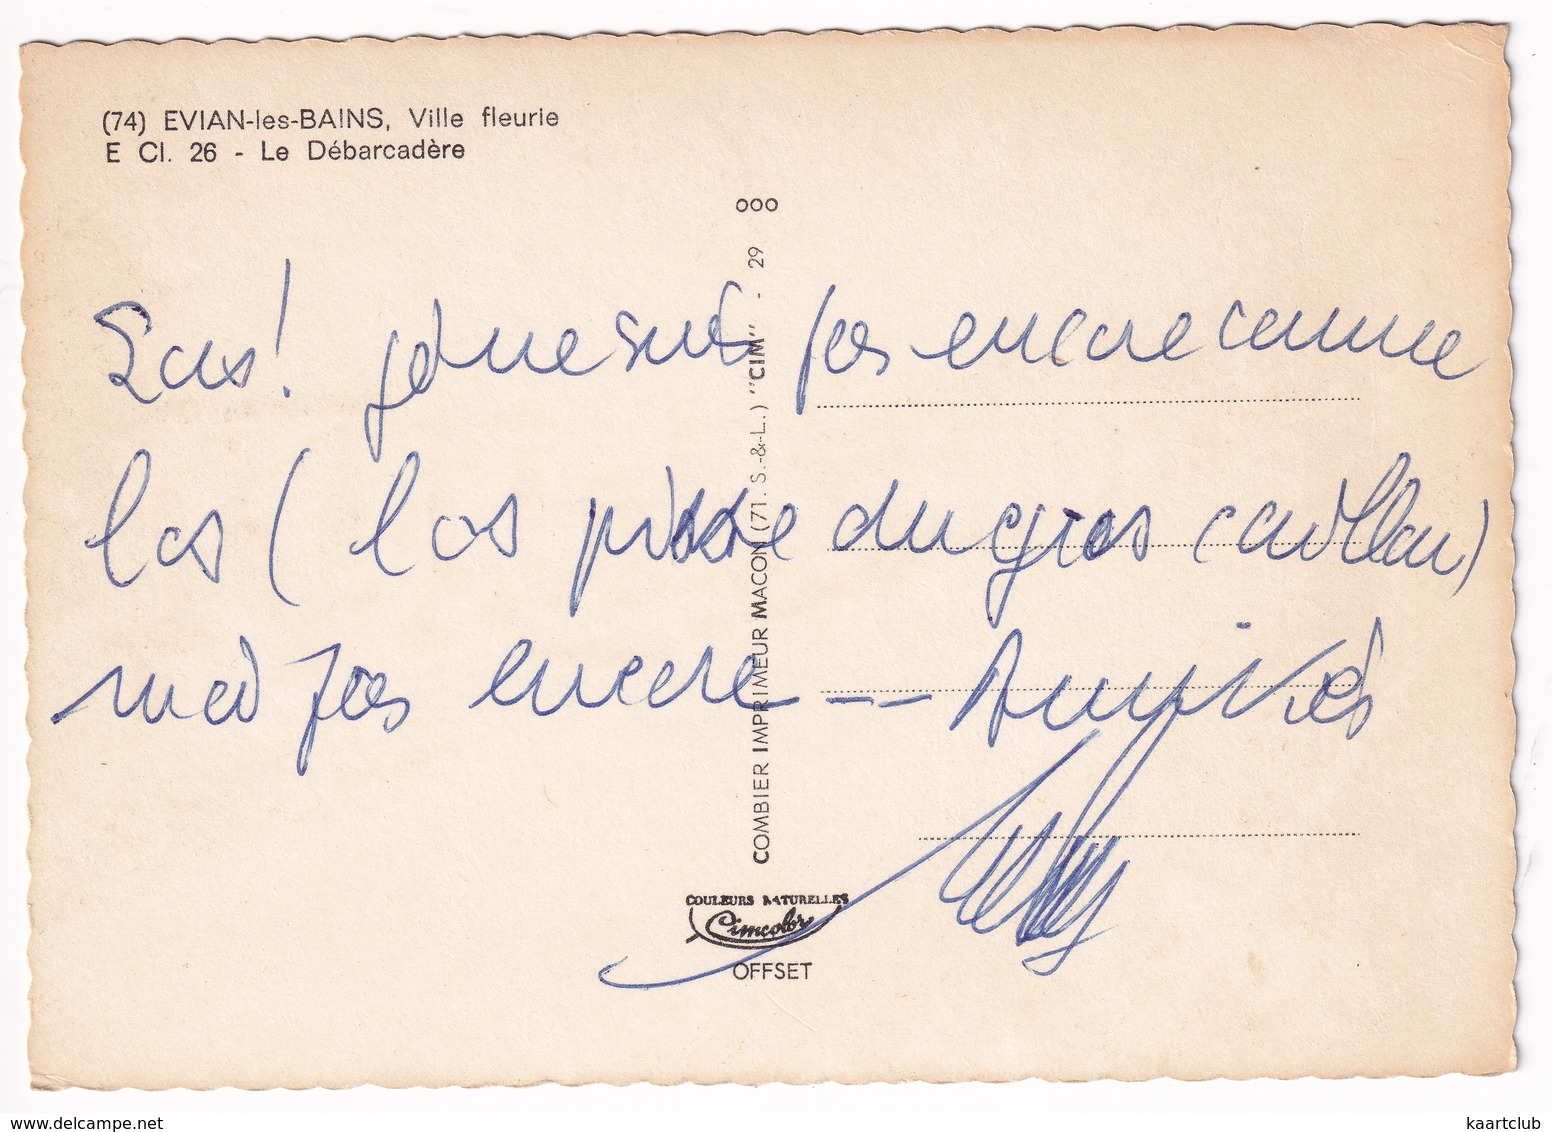 (74) EVIAN-les-BAINS, Ville fleurie
E Cl. 26 - Le Débarcadère
ooo
COMBIER IMPRIMEUR MACON (71. S.-&-L.) "CIM" - 29
! je ne suis pas encore comme
las ( las pisse du gros caillou)
moi pas encore --- Amitiés
COULEURS NATURELLES
Cimcolor
OFFSET
delcampe.net
kaartclub